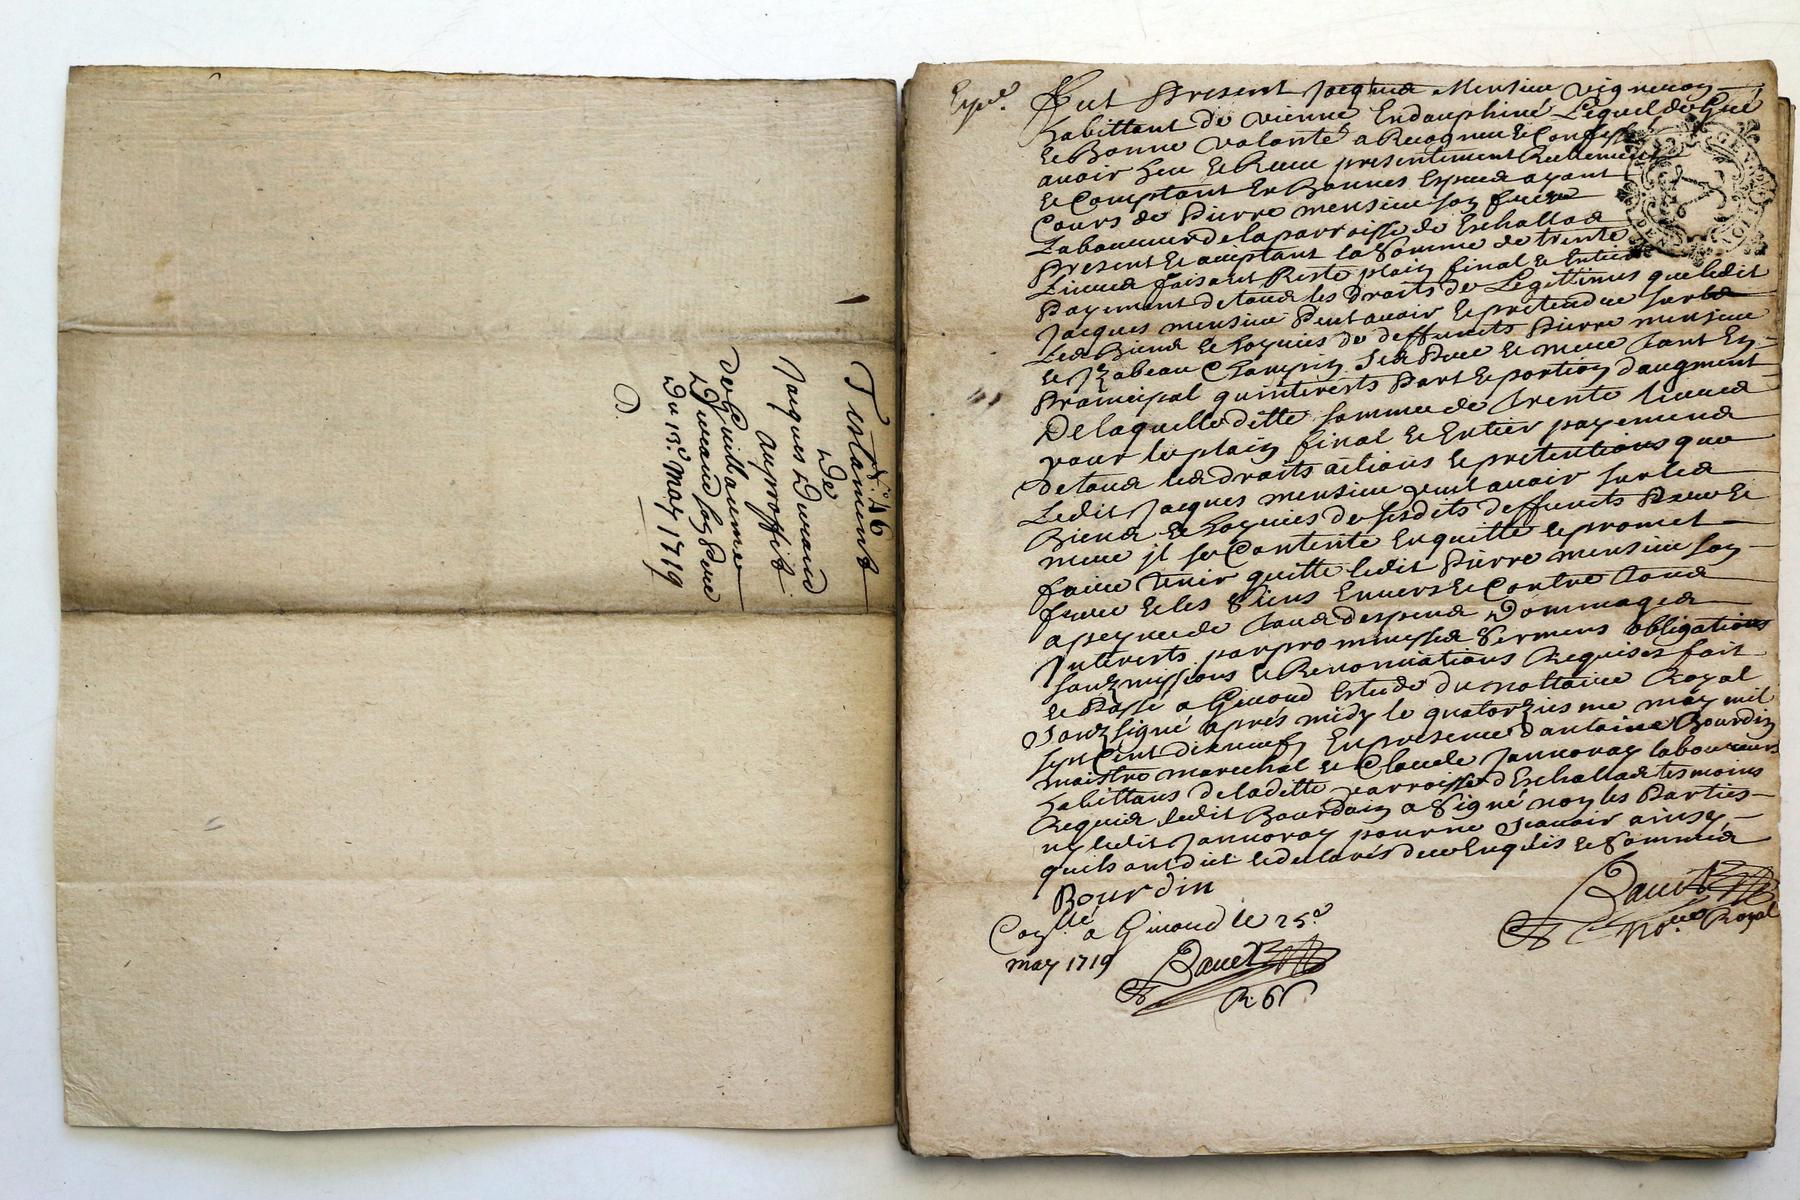 N.° 46
Testament
De
Jacques Durand
auproffit
de Guillaume
Durand son Pere
Du 13.e May 1719
D.
Exped.
Fut Present Jacques Mensieu vigneron
habittant de vienne En dauphiné Lequel de Gré
& Bonne volonté a Recogneu & Confessé
avoir heu & Receu presentement Reellement
& Comptant En Bonnes Especes ayant
Cours de Pierre mensieu son frere
Laboureur de la parroisse de Eschallas
Present & aceptant la Somme de trente
Livres faisant Reste plain final & Entier
Payement de tous les droits de Legittimes que ledit
Jacques mensieu Peut avoir & pretendre sur les
Les Biens & hoyries de deffuncts Pierre mensieu
& Izabeau Champin Ses Pere & mere tant En
Principal quinterests Part & portion d'augment
De laquelle ditte somme de trente livres
pour le plain final & Entier payemens
de tous les droits actions & pretentions que
Ledit Jacques mensieu peut avoir sur les
Biens & hoyries de sesdits deffuncts Pere &
mere il se Contente En quitte & promet
faire tenir quitte ledit Pierre mensieu son
frere & les Siens Envers & Contre tous
a peyne de tous despens Dommages
Interests par prommesses Sermens obligations
souzmissions & Renonciations Requises fait
& Passé a Givord Estude du nottaire Royal
Souzsigné aprés midy le quatorziesme may mil
sept Cent dixneuf En presence d'antoine Bourdin
maistre marechal & Claude Jannoray laboureurs
habittans de laditte parroisse d'Eschallas tesmoins
Requis ledit Bourdin a Signé non les Parties
ny ledit Jannoray pour ne Scavoir ainsy
quils ont dit & declarés deue Enquis & Sommés
Bourdin
No.re Royal
Con.llé a Givord le 25.e
may 1719
R 6 s